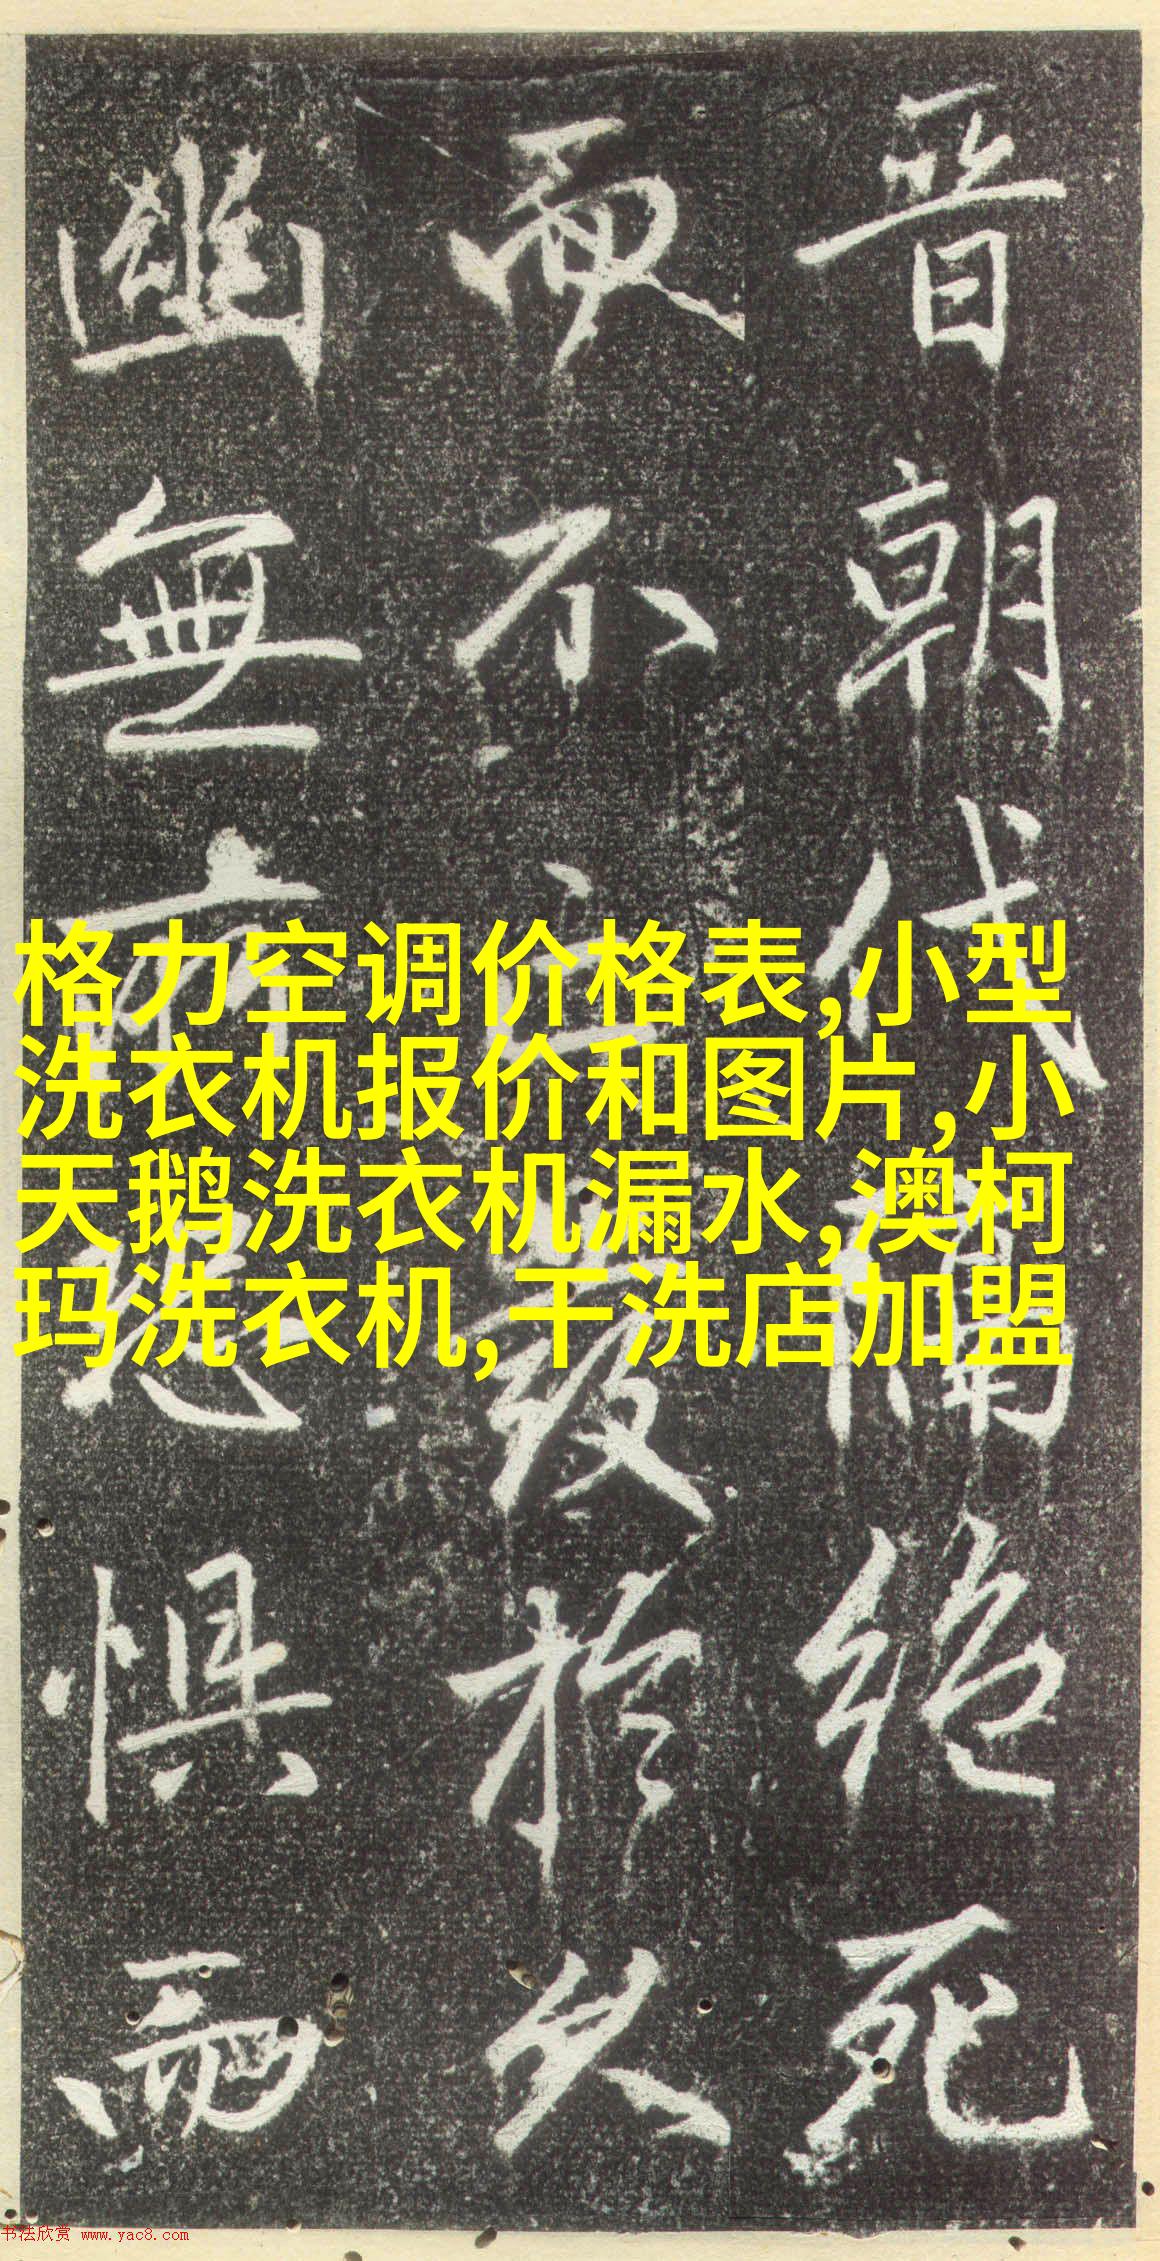 朝代隔絶死
而不發於久
幽無恐惧而
格力空调价格表,小型
洗衣机报价和图片,小
天鹅洗衣机漏水,澳柯
玛洗衣机,干洗店加盟
书法欣赏 www.yac8.com